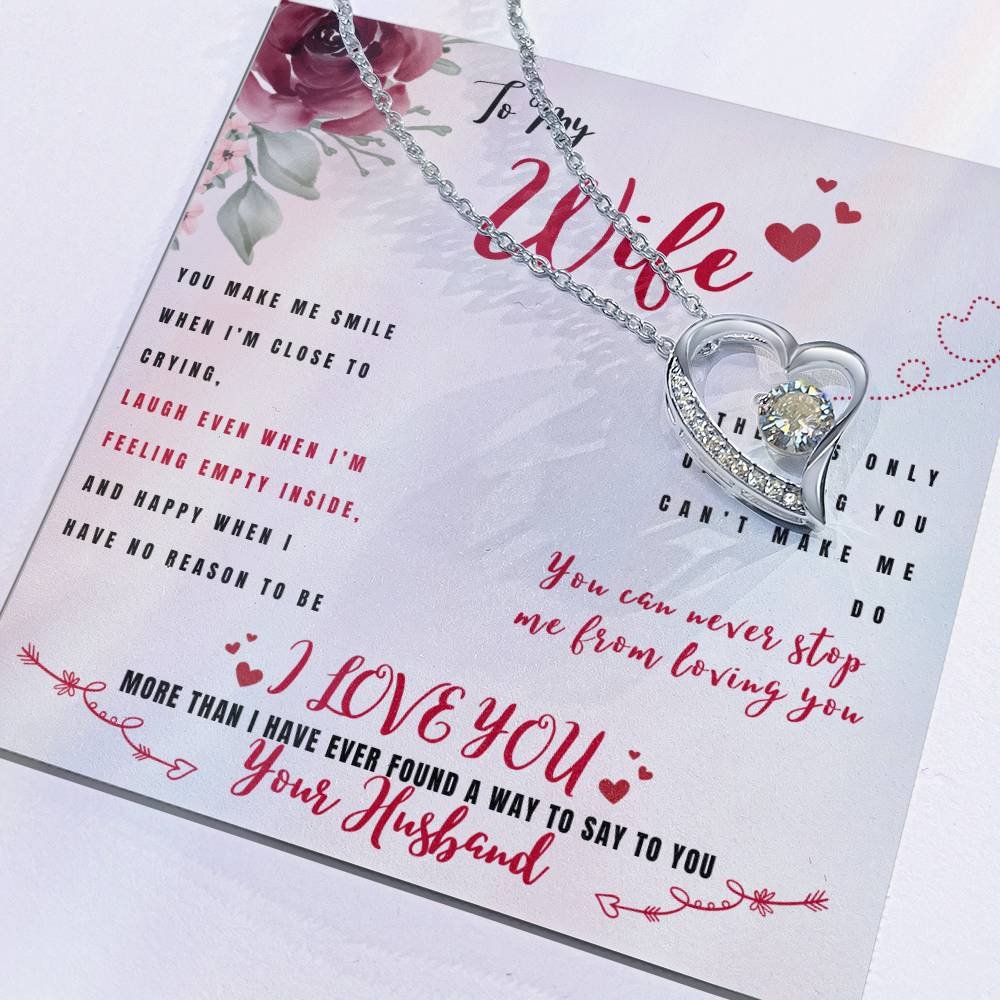 To My
Wife
YOU MAKE ME SMILE
WHEN I'M CLOSE TO
CRYING,
LAUGH EVEN WHEN I'M
FEELING EMPTY INSIDE,
AND HAPPY WHEN I
HAVE NO REASON TO BE
ONLY
YOU
CAN'T MAKE ME
DO
You can never stop
me from loving you
I LOVE YOU
MORE THAN I HAVE EVER FOUND A WAY TO SAY TO YOU
Your Husband